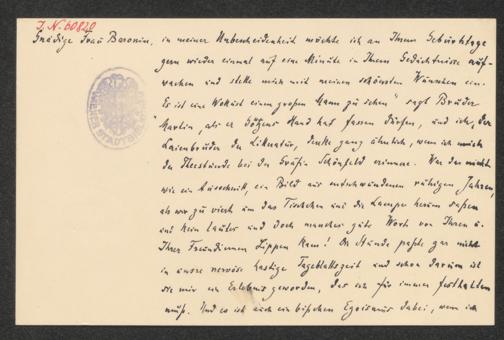 J. N. 60820
Gnädige Frau Baronin, in meiner Unbescheidenheit möchte ich an Ihrem Geburtstage
gern wieder einmal auf eine Minute in Ihrem Gedächtnisse auf-
wachen und stelle mich mit meinen schönsten Wünschen ein.
"Es ist eine Wollust einen großen Mann zu sehen" sagt Bruder
Martin, als er Götzens Hand hat fassen dürfen, und ich, der
Laienbruder der Litteratur, denke ganz ähnlich, wenn ich mich
der Theestunde bei der Gräfin Schönfeld erinnere. War das nicht
wie ein Ausschnitt, ein Bild aus entschwundenen ruhigen Jahren,
als wir zu viert um das Tischchen und die Lampe herum saßen
und kein lautes und doch manches gute Wort von Ihren u.
Ihrer Freundinnen Lippen kam! Die Stunde paßte gar nicht
in unsre nervöse hastige Tageblattszeit und schon darum ist
sie mir ein Erlebnis geworden, das ich für immer festhalten
muß. Und es ist auch ein bißchen Egoismus dabei, wenn ich